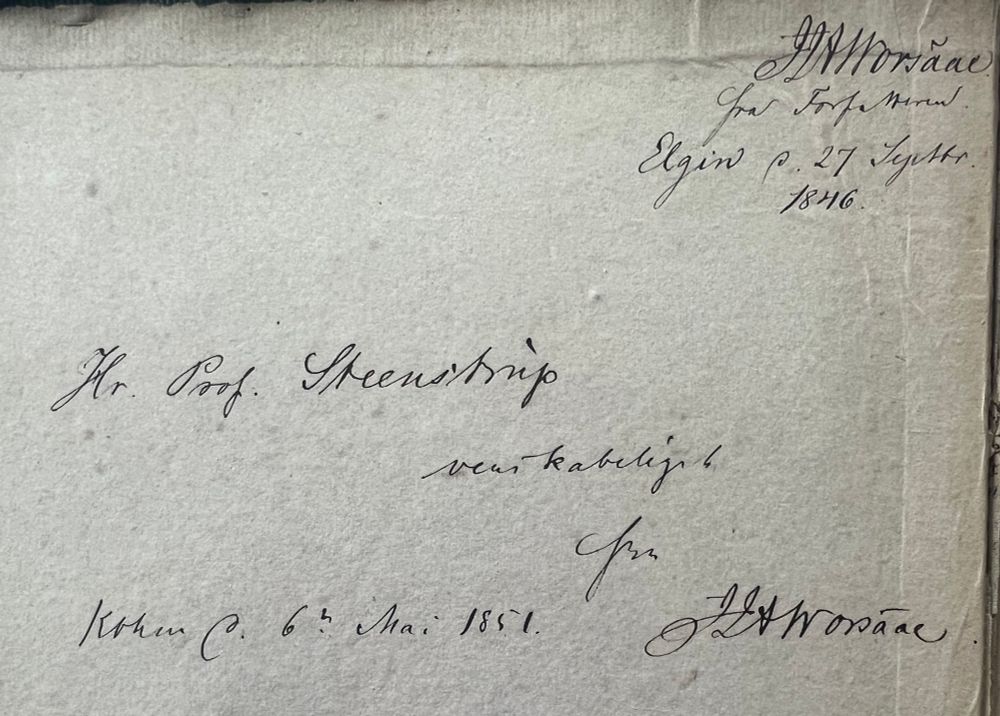 JJAWorsaae.
fra Forfatteren.
Elgin d. 27 Septbr.
1846.
Hr. Prof. Steenstrup
venskabeligst
fra
Kbhvn d. 6te Mai 1851.
JJAWorsaae.